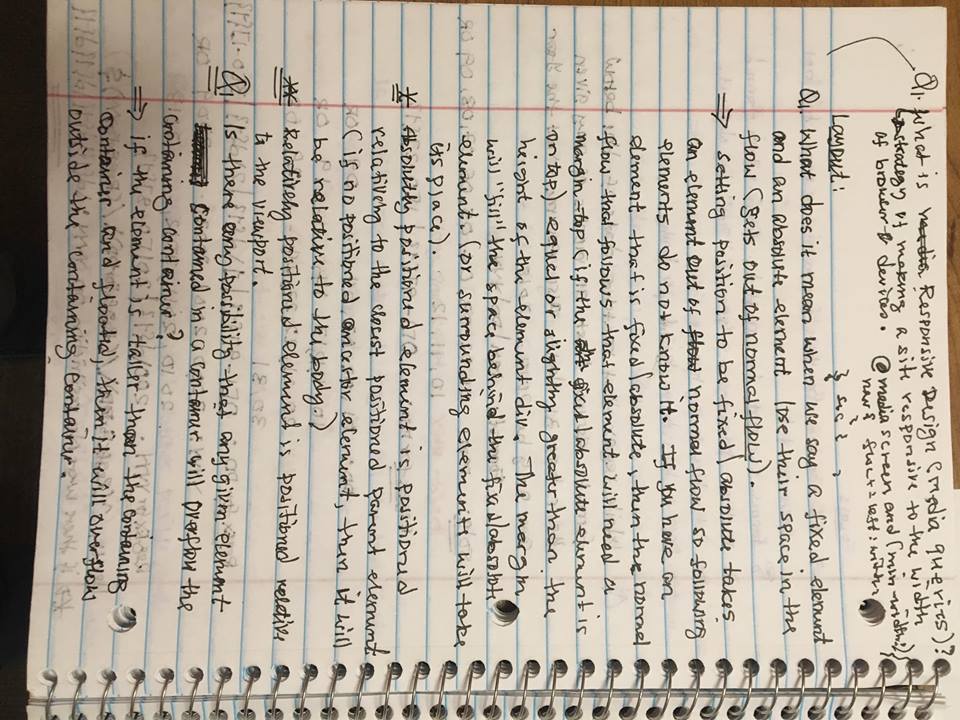 Q1. What is Responsive Design (media queries)?
strategy of making a site responsive to the width
of browser & devices. @media screen and (min-width:)
nav & footer
{ src: ;
Layout:
Q1. What does it mean when we say a fixed element
and an absolute element lose their space in the
flow (gets out of normal flow).
⇒ setting position to be fixed/absolute takes
an element out of normal flow so following
elements do not know it. If you have an
element that is fixed/absolute, then the normal
flow that follows that element will need a
margin-top (if the fixed/absolute element is
on top) equal or slightly greater than the
height of the element div. The margin
will "fill" the space behind the fix/absolute
element. (or surrounding element will take
its place).
* Absolutely positioned element is positioned
relatively to the closest positioned parent element
(if no positioned ancestor element, then it will
be relative to the body.)
** Relatively positioned element is positioned relative
to the viewport.
Q1. Is there any possibility that any given element
contained in a container will overflow the
containing container?
⇒ if the element is taller than the containing
container and floated, then it will overflow
outside the containing container.